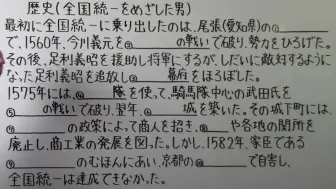 歴史(全国統一をめざした男)
最初に全国統一に乗り出したのは、尾張(愛知県)の①
で、1560年、今川義元を②の戦いで破り、勢力をひろげた。
その後、足利義昭を援助し将軍にするが、しだいに敵対するように
なった足利義昭を追放し③幕府をほろぼした。
1575年には、④隊を使って、騎馬隊中心の武田氏を
⑤の戦いで破り、翌年、⑥城を築いた。その城下町には、
⑦の政策によって商人を招き、⑧や各地の関所を
廃止し、商工業の発展を図った。しかし、1582年、家臣である
⑨のむほんにあい、京都の⑩で自害し、
全国統一は達成できなかった。